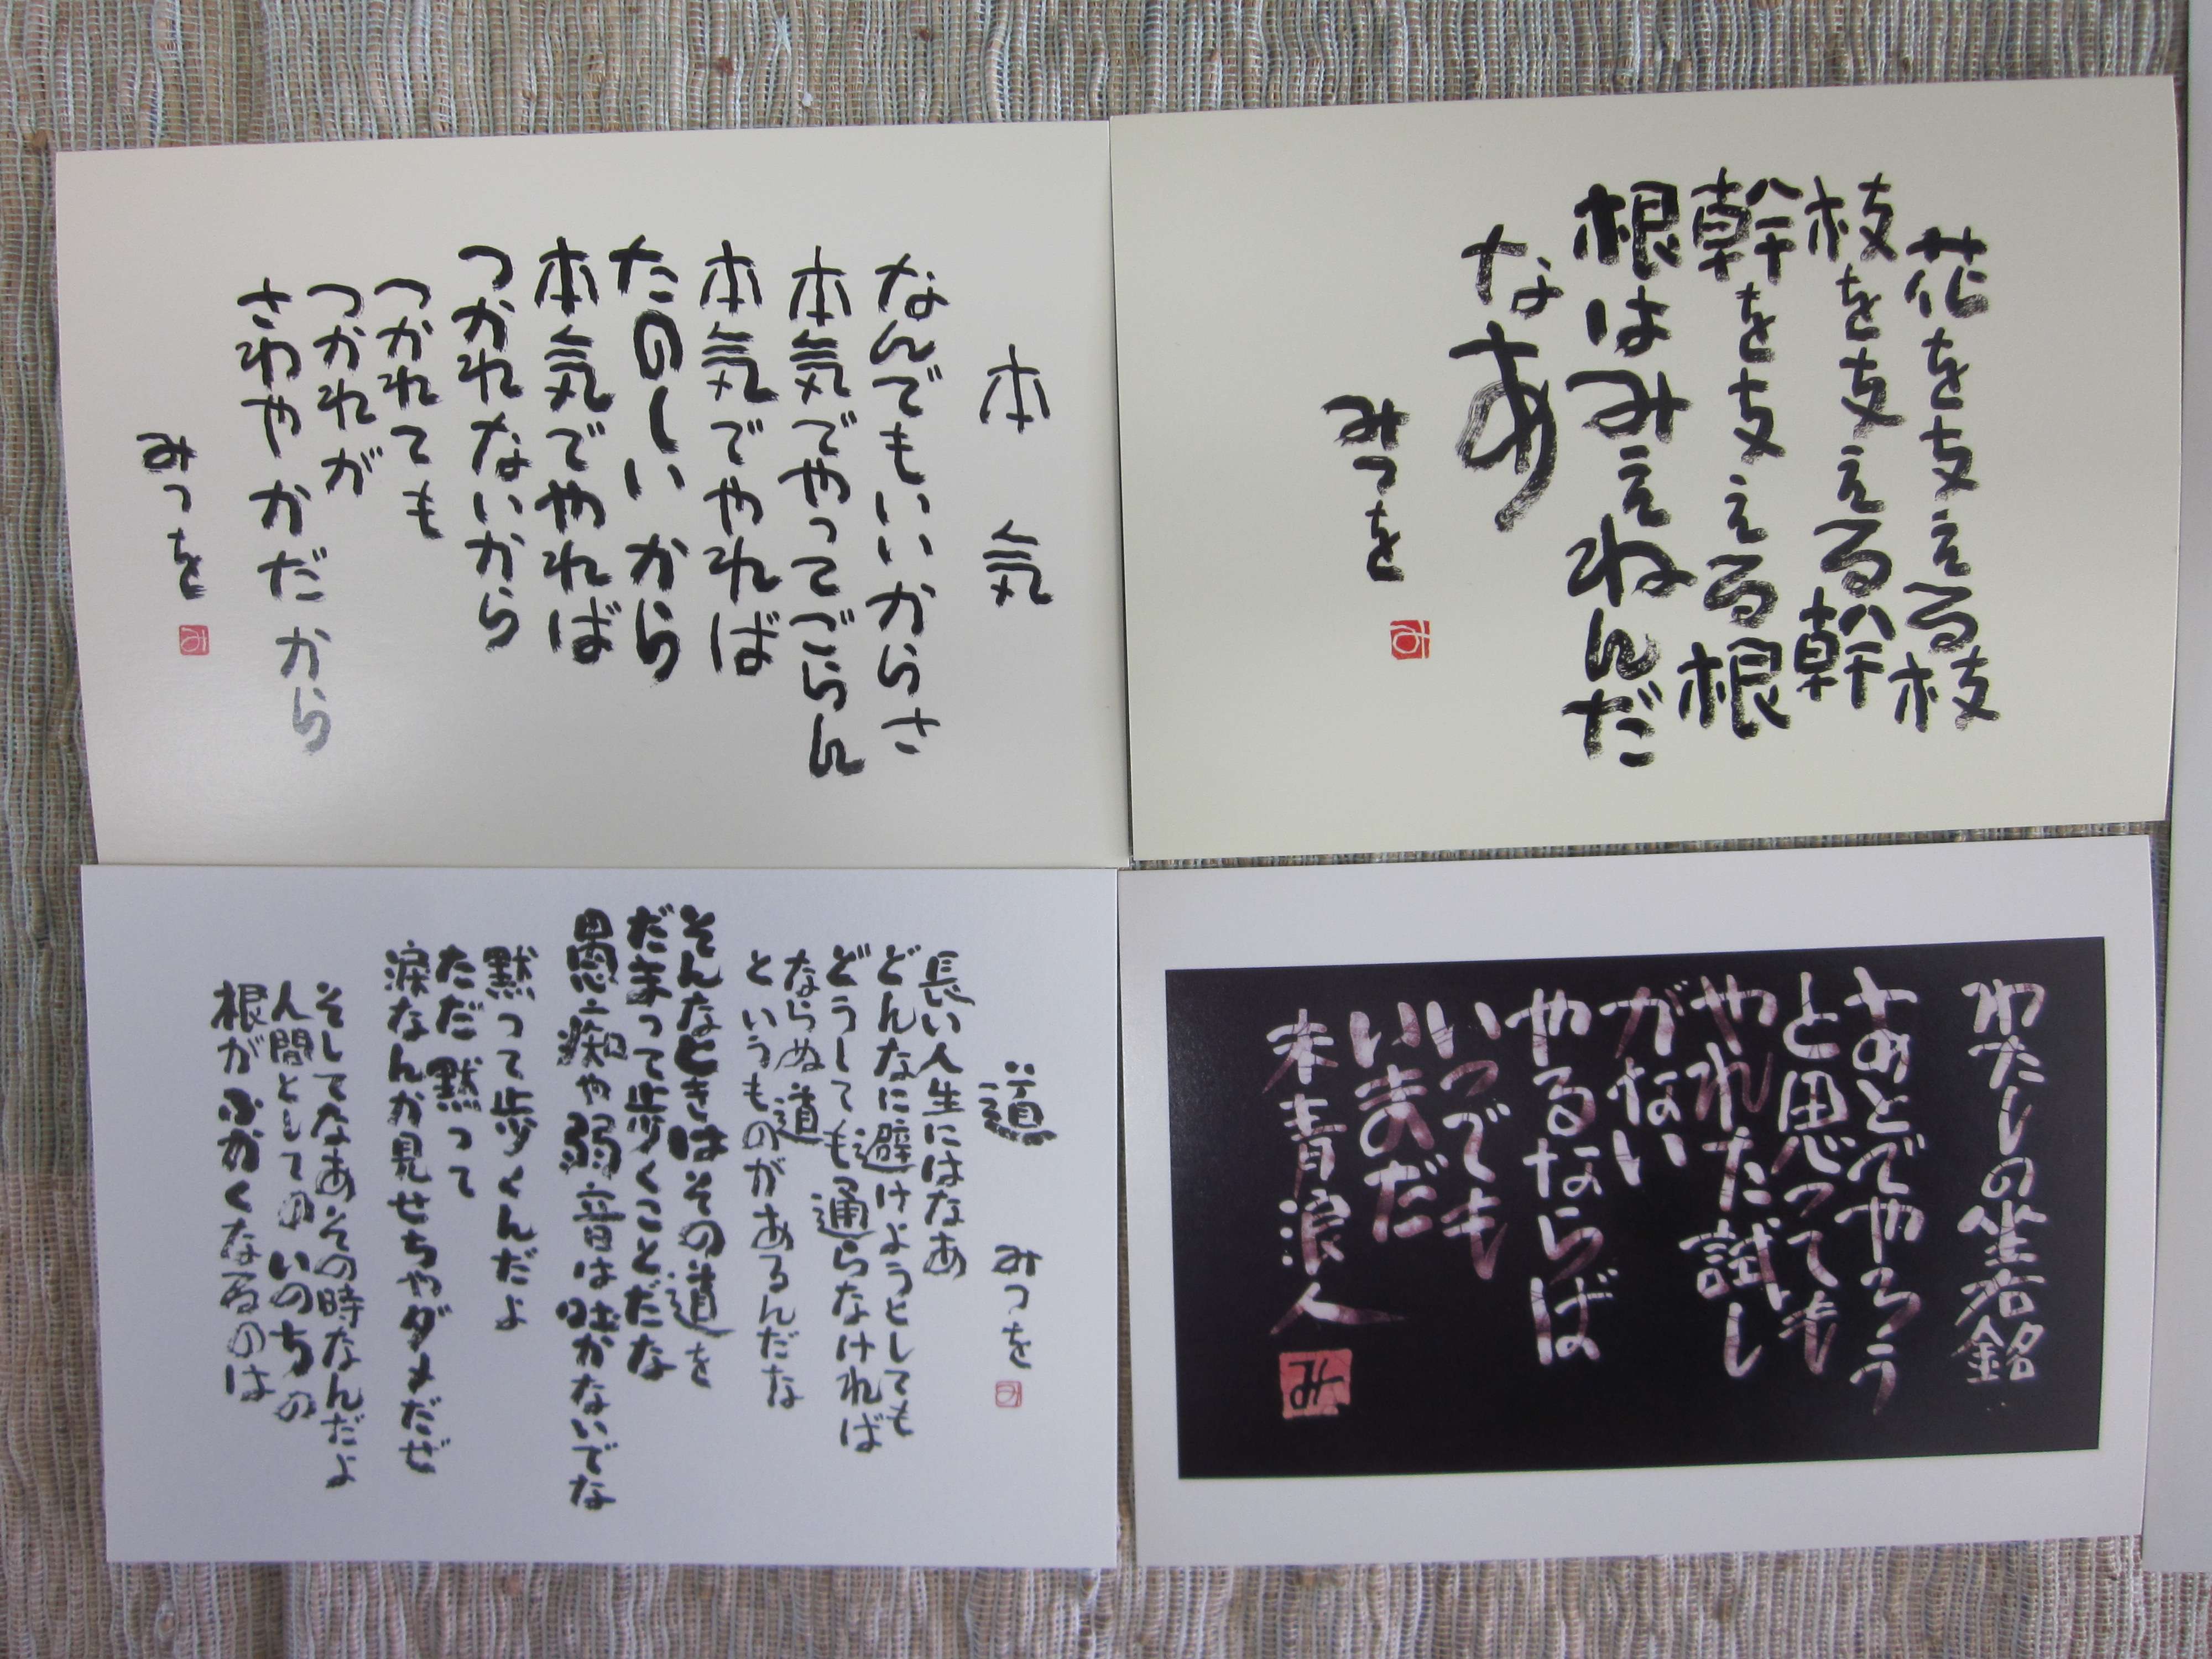 花を支える枝
枝を支える幹
幹を支える根
根はみえねんだ
なあ
みつを
み
本気
なんでもいいからさ
本気でやってごらん
本気でやれば
たのしいから
本気でやれば
つかれないから
つかれても
つかれが
さわやかだから
みつを
み
わたしの坐右銘
あとでやろう
と思っても
やれた試し
がない
やるならば
いつでも
いまだ
未青浪人
み
道
みつを
み
長い人生にはなあ
どんなに避けようとしても
どうしても通らなければ
ならぬ道
というものがあるんだな
そんなときはその道を
だまって歩くことだな
愚痴や弱音は吐かないでな
黙って歩くんだよ
ただ黙って
涙なんか見せちゃダメだぜ
そしてなあその時なんだよ
人間としてのいのちの
根がふかくなるのは